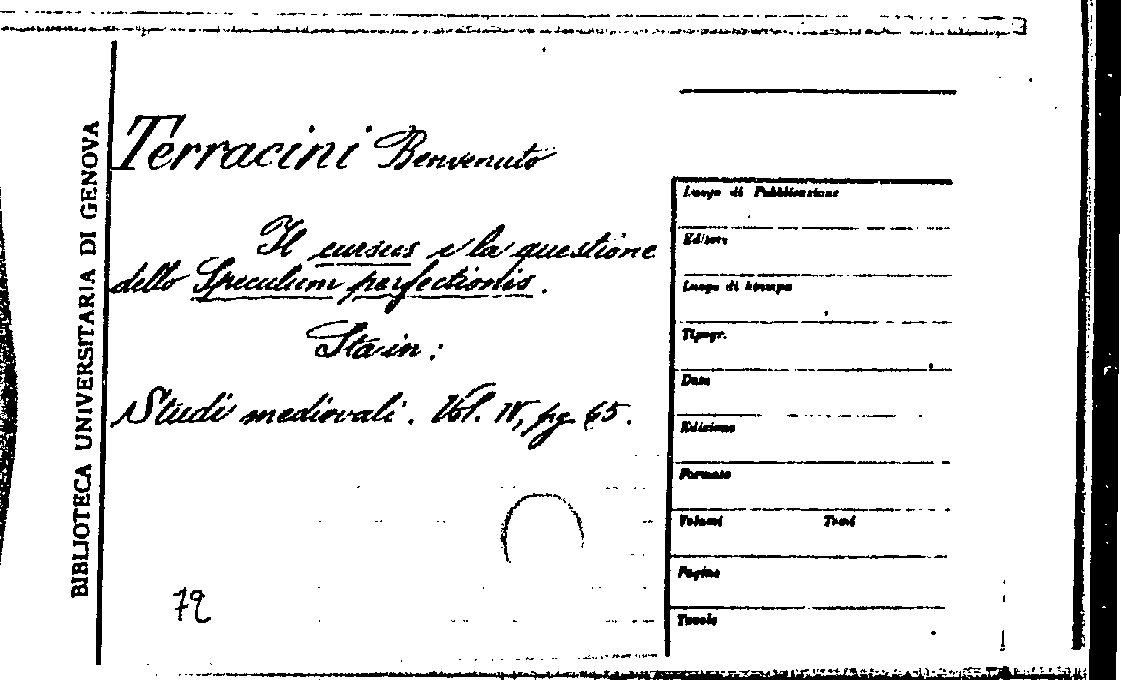 BIBLIOTECA UNIVERSITARIA DI GENOVA
Terracini Benvenuto
Il cursus e la questione
dello Speculum perfectionis.
Sta in:
Studi medievali. Vol. IV, pg 65.
79
Luogo di Pubblicazione
Editore
Luogo di stampa
Tipogr.
Data
Edizione
Formato
Volumi Tomi
Pagine
Tavole